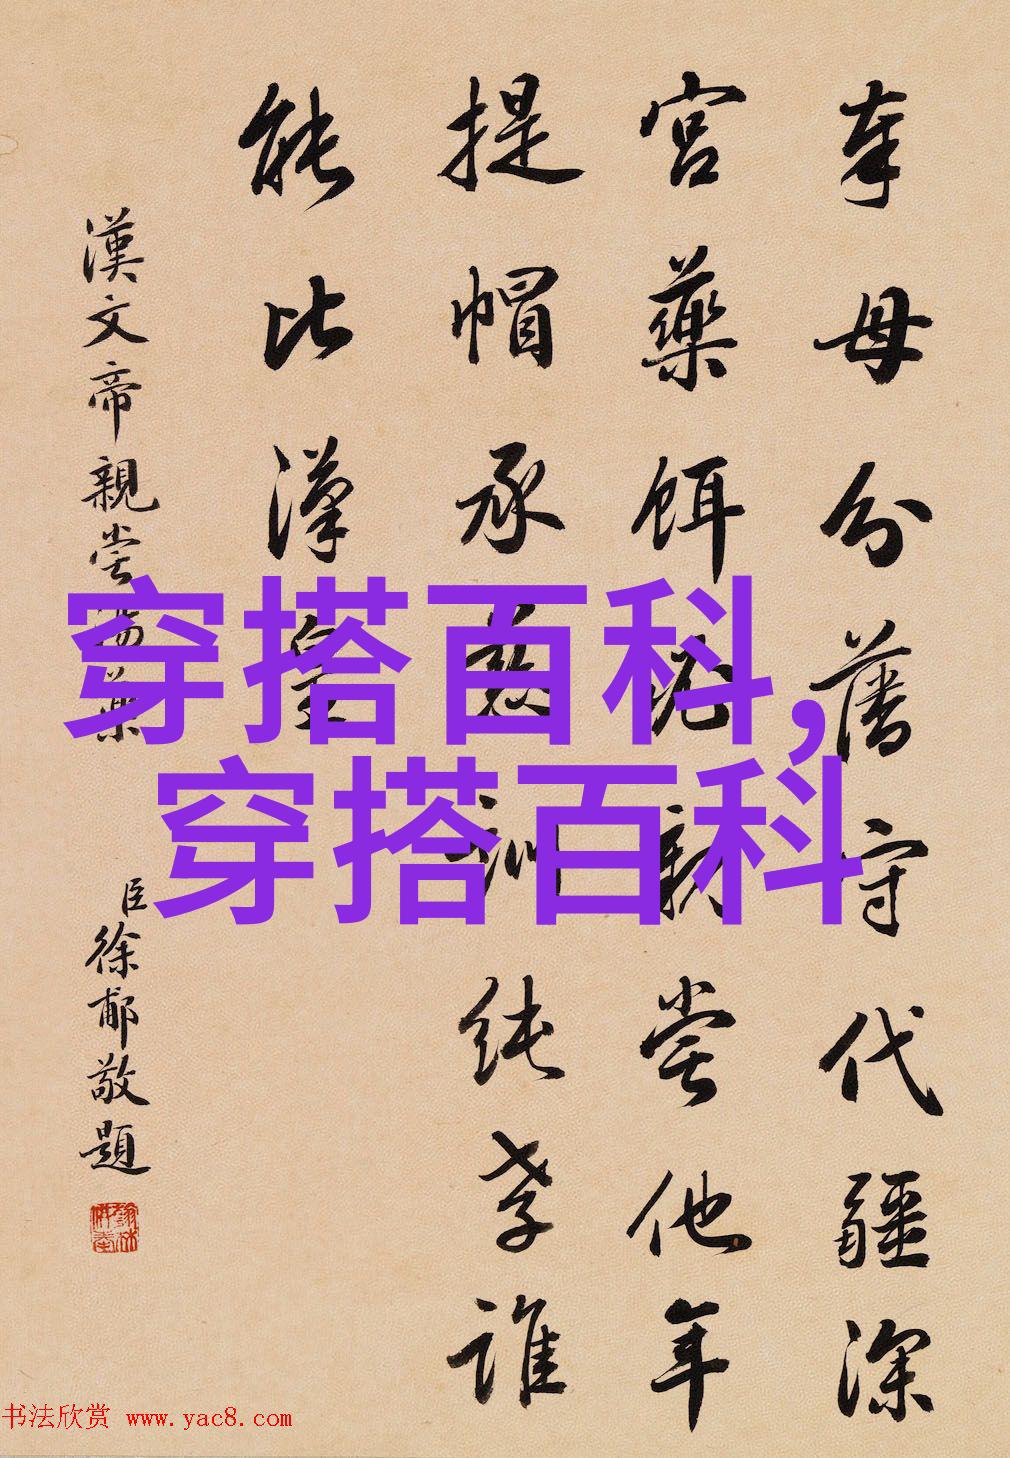 奉母分藩守代疆深
宮藥餌親嘗他年
提帽承慈訓純孝誰
能比漢皇
漢文帝親嘗湯藥
臣徐郙敬題
穿搭百科,
穿搭百科
书法欣赏 www.yac8.com